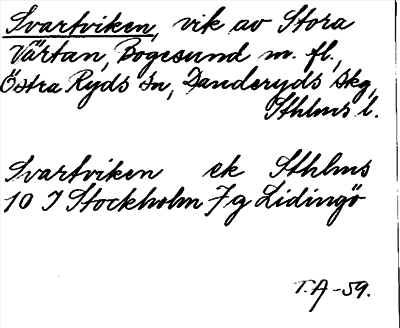 Svartviken, vik av Stora
Värtan, Bogesund m. fl.,
Östra Ryds sn, Danderyds skg,
Sthlms l.
Svartviken ek Sthlms
10 I Stockholm 7g Lidingö
T.A-59.